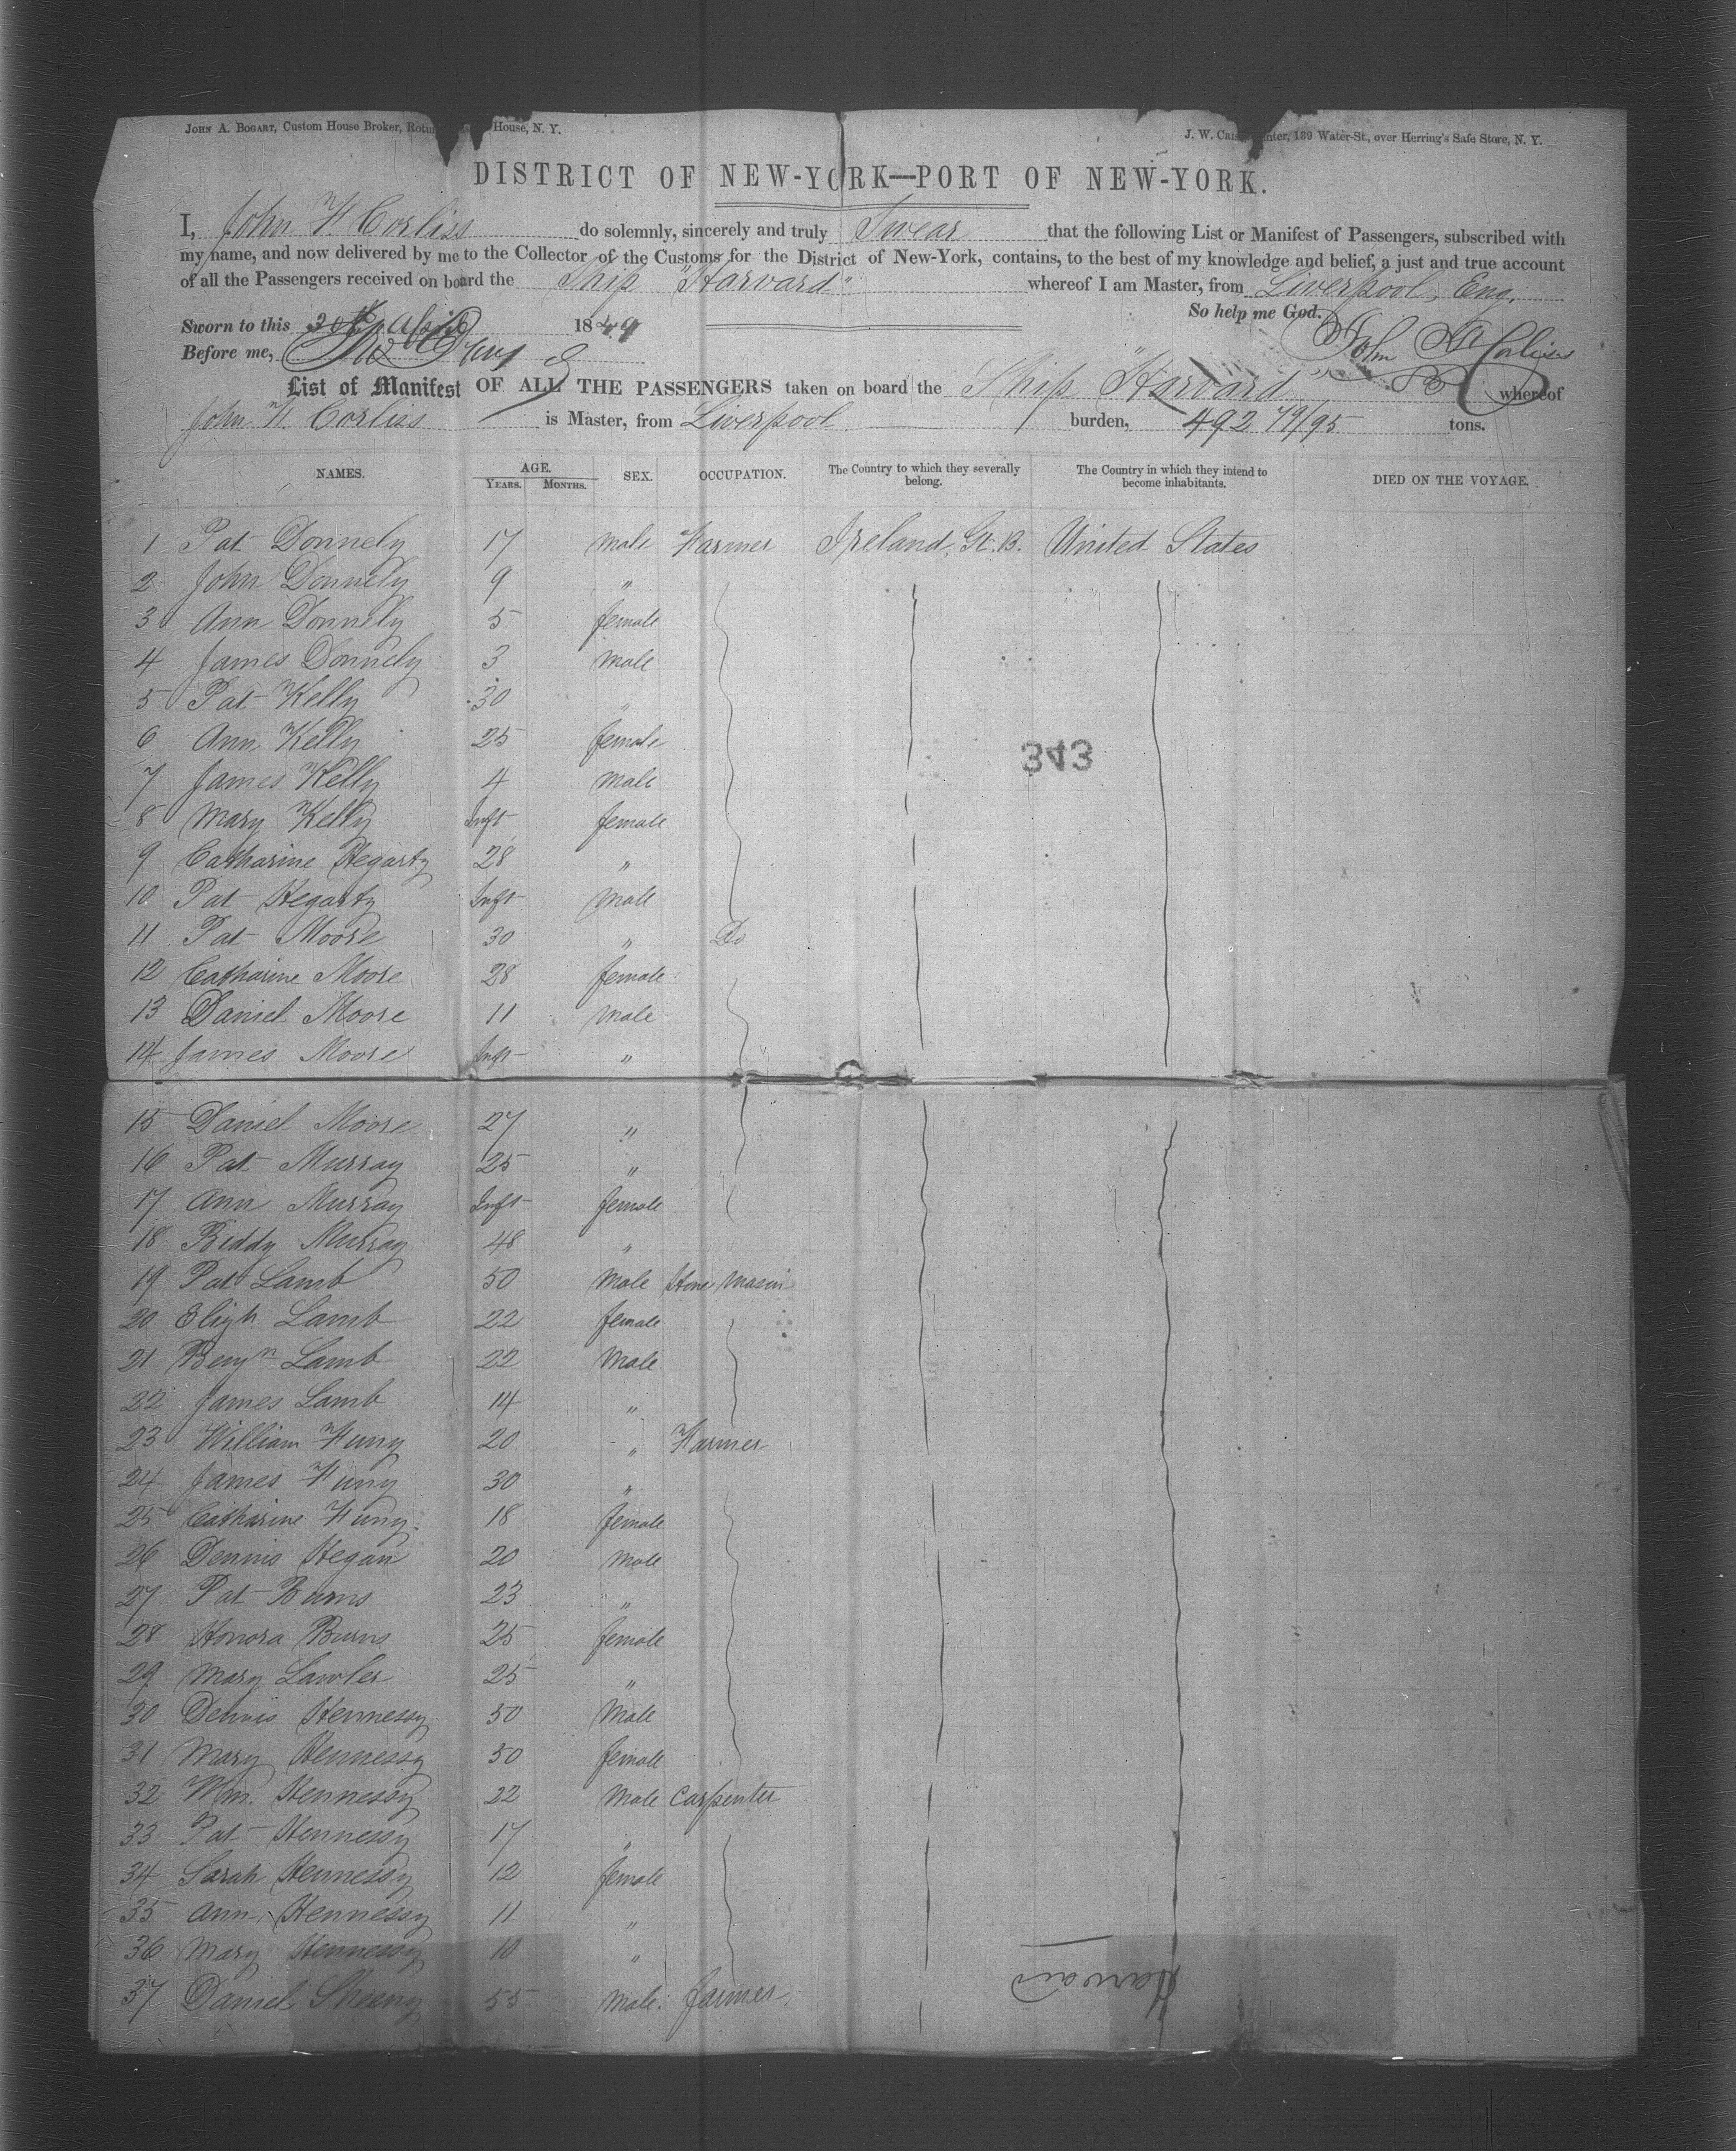 JOHN A. BOGART, Custom House Broker, House, N. Y.
J. W. 139 Water-St., over Herring's Safe Store, N. Y.
DISTRICT OF NEW-YORK—PORT OF NEW-YORK.
I, John F. Corliss do solemnly, sincerely and truly Swear that the following List or Manifest of Passengers, subscribed with
my name, and now delivered by me to the Collector of the Customs for the District of New-York, contains, to the best of my knowledge and belief, a just and true account
of all the Passengers received on board the Ship "Harvard" whereof I am Master, from Liverpool, Eng.
So help me God.
Sworn to this 30th April 1849
Before me,
John Corliss
List of Manifest OF ALL THE PASSENGERS taken on board the Ship "Harvard" whereof
John F. Corliss is Master, from Liverpool burden, 492 79/95 tons.
NAMES. AGE. SEX. OCCUPATION. The Country to which they severally belong. The Country in which they intend to become inhabitants. DIED ON THE VOYAGE.
YEARS. MONTHS.
1 Pat Donnely 17 male Farmer Ireland, Gt. B. United States
2 John Donnely 9 "
3 Ann Donnely 5 female
4 James Donnely 3 male
5 Pat Kelly 30 "
6 Ann Kelly 25 female
343
7 James Kelly 4 male
8 Mary Kelly Inft female
9 Catharine Hegarty 28 "
10 Pat Hegarty Inft male
11 Pat Moore 30 " Do
12 Catharine Moore 28 female
13 Daniel Moore 11 male
14 James Moore Inft "
15 Daniel Moore 27 "
16 Pat Murray 25 "
17 Ann Murray Inft female
18 Biddy Murray 48 "
19 Pat Lamb 50 male Stone Mason
20 Lamb 22 female
21 Benjn Lamb 22 male
22 James Lamb 14 "
23 William 20 " Farmer
24 James 30 "
25 Catharine 18 female
26 Dennis Hegan 20 male
27 Pat Burns 23 "
28 Honora Burns 25 female
29 Mary Lawler 25 "
30 Dennis Hennessy 50 male
31 Mary Hennessy 50 female
32 Wm. Hennessy 22 male Carpenter
33 Pat Hennessy 17 "
34 Sarah Hennessy 12 female
35 Ann Hennessy 11 "
36 Mary Hennessy 10 "
37 Daniel Sheeny 55 male. farmer
Harvard